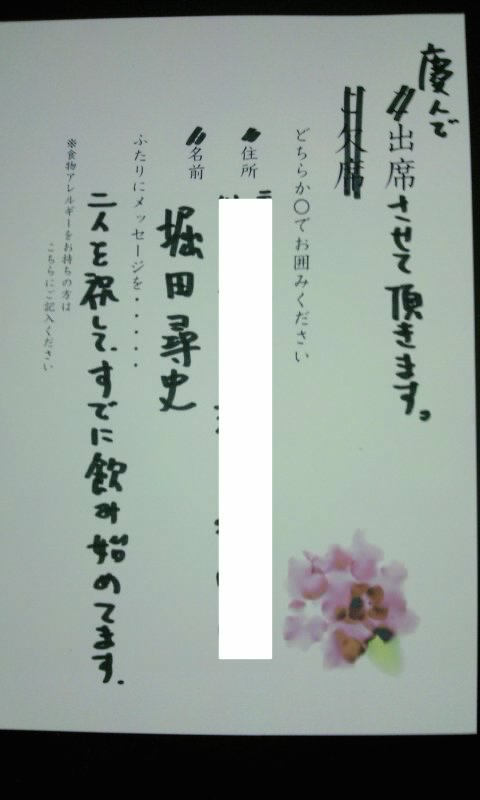 慶んで
御出席させて頂きます。
御欠席
どちらか○でお囲みください
御住所
御名前
堀田尋史
ふたりにメッセージを・・・・・
二人を祝して、すでに飲み始めてます.
※食物アレルギーをお持ちの方は
こちらにご記入ください